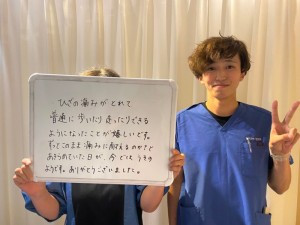 ひざの痛みがとれて
普通に歩いたり走ったりできる
ようになったことが嬉しいです。
ずっとこのまま痛みに耐えるのかなと
あきらめていた日が、今ではウソの
ようです。ありがとうございました。